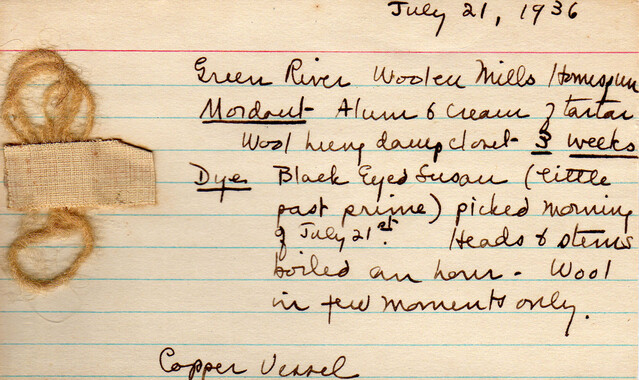 July 21, 1936
Green River Woolen Mills Homespun
Mordant Alum & Cream of tartar
Wool hung damp closet 3 weeks
Dye Black Eyed Susan (little
past prime) picked morning
of July 21st. Heads & stems
boiled an hour - Wool
in few moments only.
Copper Vessel